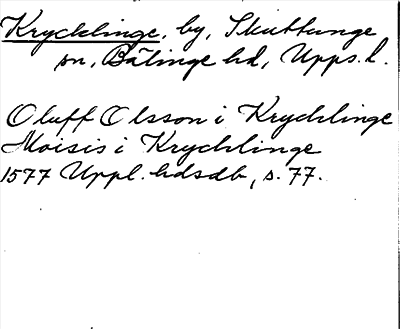 Krycklinge, by, Skuttunge
sn, Bälinge hd, Upps. l.
Oluff Olsson i Krychlinge
Moisis i Krychlinge
1577 Uppl. hdsdb, s. 77.